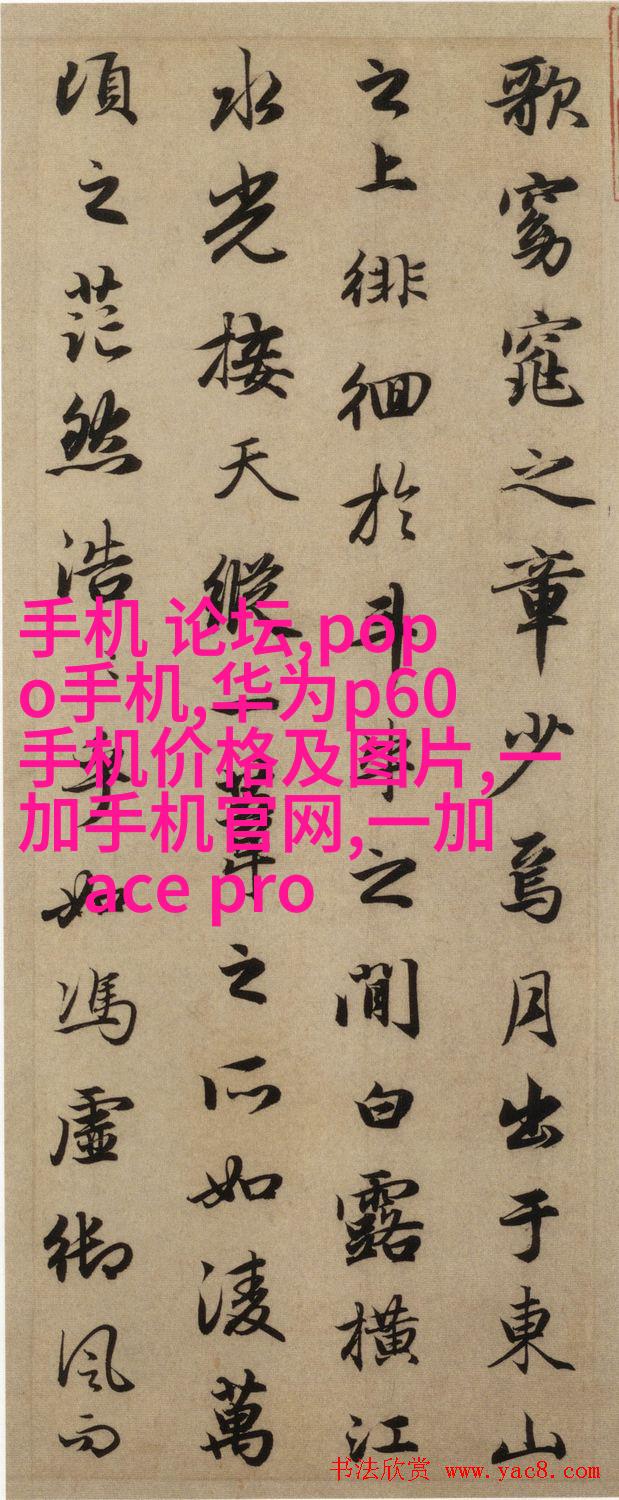 歌窈窕之章少焉月出于東山
之上徘徊於斗牛之間白露橫江
水光接天縱一葦之所如淩萬
頃之茫然浩乎如馮虛御風而
手机 论坛,pop
o手机,华为p60
手机价格及图片,一
加手机官网,一加
ace pro
书法欣赏 www.yac8.com